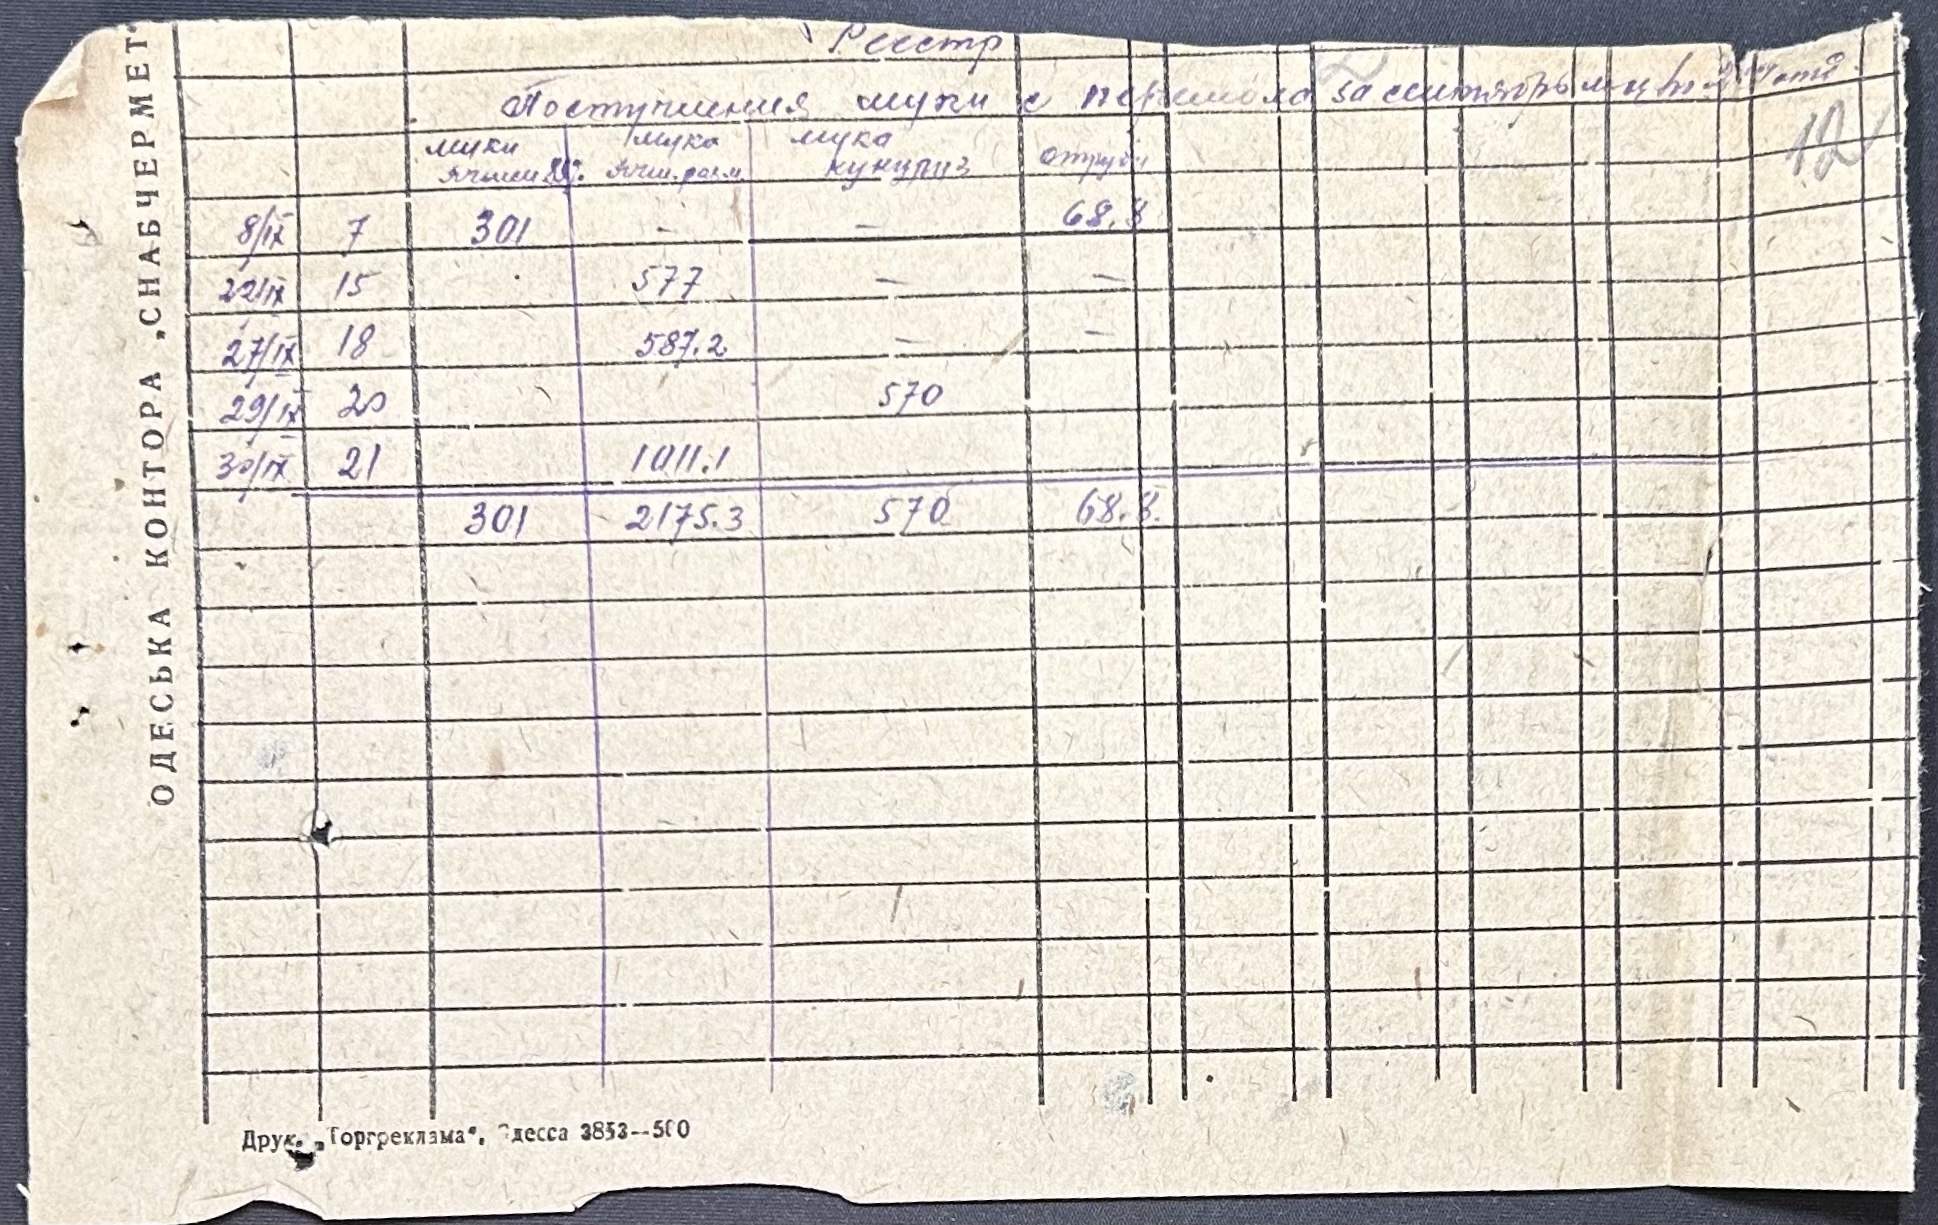 ОДЕСЬКА КОНТОРА „СНАБЧЕРМЕТ"
Реестр
Поступления муки с перемола за сентябрь м-ц
12
муки ячмен мука ячм. разм. мука кукуруз отруби
8/IX 7 301 - - 68.8
22/IX 15 577 - -
27/IX 18 587.2 - -
29/IX 20 570
30/IX 21 1011.1
301 2175.3 570 68.8.
Друк. „Торгреклама". Одесса 3853—500